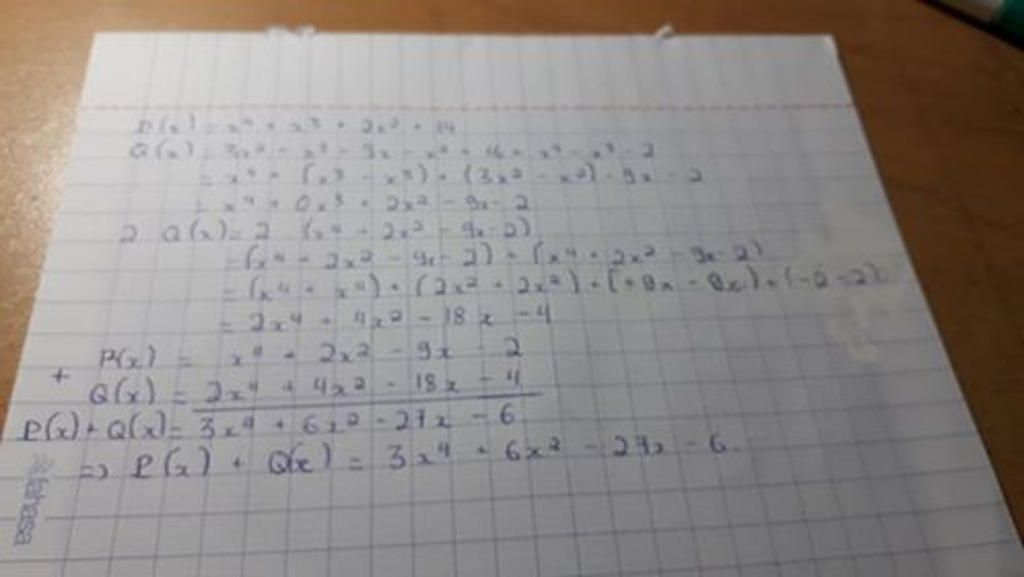 P(x) = x⁴ + x³ + 2x² + 14
Q(x) = 3x² - x³ - 9x - x² + 16 + x⁴ - x³ - 2
= x⁴ + (x³ - x³) + (3x² - x²) - 9x - 2
= x⁴ + 0x³ + 2x² - 9x - 2
2 Q(x) = 2 (x⁴ + 2x² - 9x - 2)
= (x⁴ + 2x² - 9x - 2) + (x⁴ + 2x² - 9x - 2)
= (x⁴ + x⁴) + (2x² + 2x²) + (+9x - 9x) + (-2-2)
= 2x⁴ + 4x² - 18x - 4
+ P(x) = x⁴ + 2x² - 9x - 2
Q(x) = 2x⁴ + 4x² - 18x - 4
P(x) + Q(x) = 3x⁴ + 6x² - 27x - 6
=> P(x) + Q(x) = 3x⁴ + 6x² - 27x - 6.
fahasa